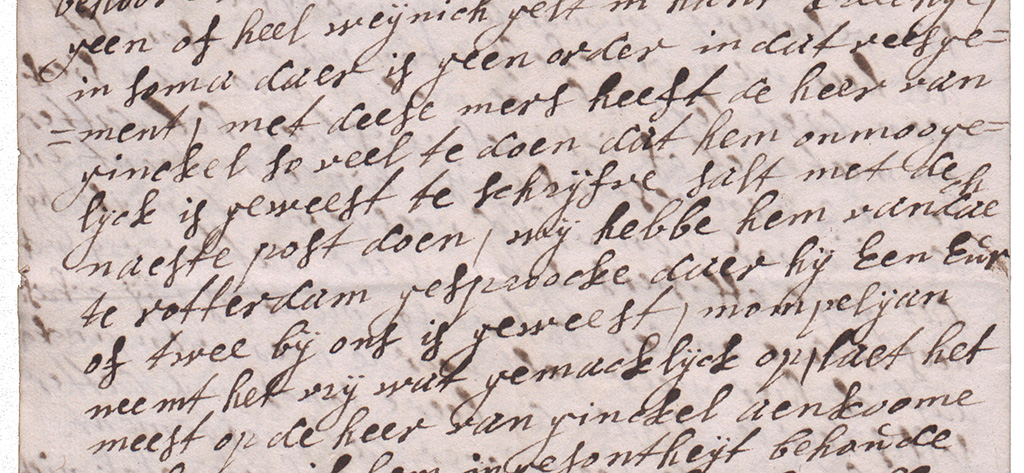 geen of heel weijnich gelt in hant
in soma daer is geen order in dat reesge=
=ment, met deese mers heeft de heer van
ginckel so veel te doen dat hem onmooge=
lijck is geweest te schrijfve salt met de
naeste post doen, wij hebbe hem vandaech
te rotterdam gesproocke daer hij Een Eur
of twee bij ons is geweest, mompelijan
neemt het vrij wat gemacklijck op, laet het
meest op de heer van ginckel aenkoome
hem in gesontheijt behoude